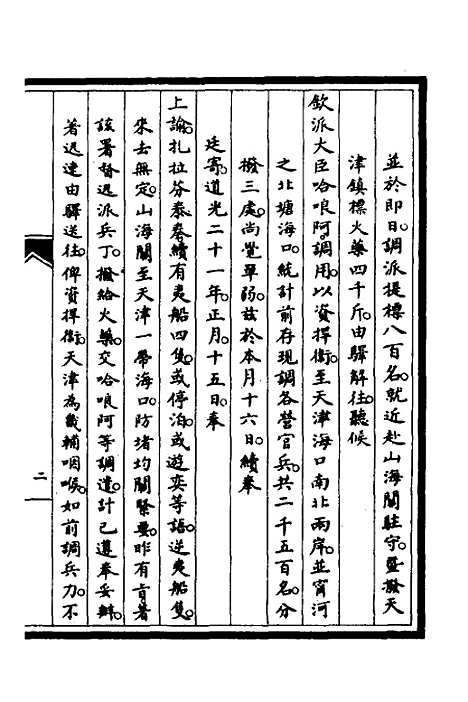 並於即日。調派提標八百名。就近赴山海關駐守。曁撥天
津鎮標火藥四千斤。由驛解往。聽候
欽派大臣哈哴阿。調用。以資捍衞。至天津海口南北兩岸。並甯河
之北塘海口。統計前存現調各營官兵。共二千五百名。分
撥三處。尚覺單弱。茲於本月十六日。續奉
廷寄。道光二十一年。正月。十五日。奉
上諭。扎拉芬泰奏。續有夷船四隻。或停泊。或遊奕等語。逆夷船隻。
來去無定。山海關至天津一帶海口。防堵均關緊要。昨有㫖著
該署督。迅派兵丁。撥給火藥。交哈哴阿等調遣。計已遵奉妥辦。
著迅速由驛送往。俾資捍衞。天津為畿輔咽喉。如前調兵力。不
二